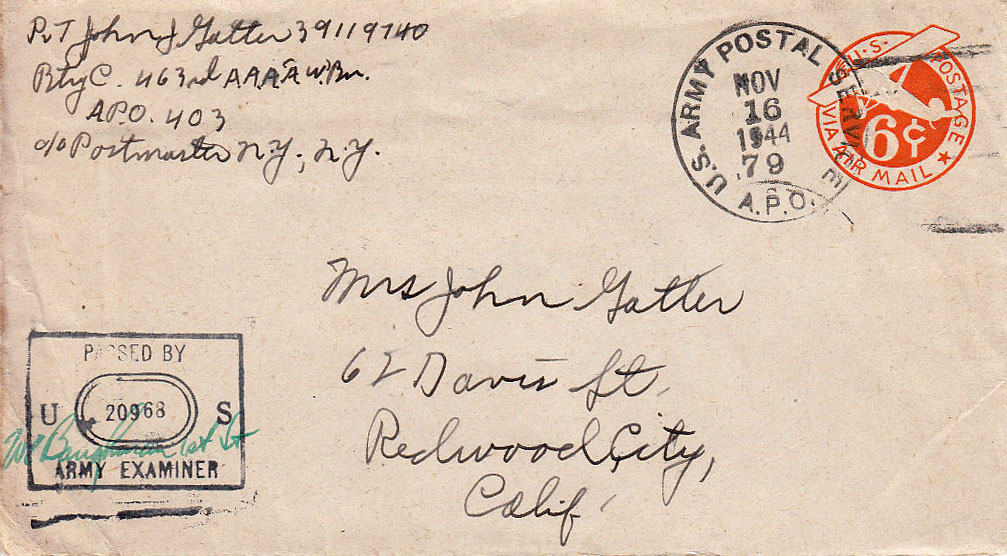 Pvt John J Gatter 39119740
Btry C. 463rd AAA AW Bn.
A.P.O. 403
c/o Postmaster N.Y., N.Y.
U.S. ARMY POSTAL SERVICE
NOV
16
1944
79
A.P.O.
U.S. POSTAGE
6¢
VIA AIR MAIL
Mrs John Gatter
62 Davis St.
Redwood City,
Calif.
PASSED BY
U 20968 S
1st Lt
ARMY EXAMINER